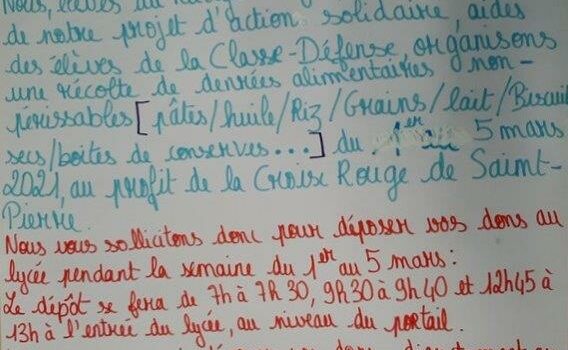 Nous, élèves du
de notre projet d'action solidaire, aidés
des élèves de la Classe-Défense, organisons
une récolte de denrées alimentaires non-
périssables [pâtes/huile/Riz/Grains/lait/Biscuit
secs/boites de conserves...] du 1er au 5 mars
2021, au profit de la Croix Rouge de Saint-
Pierre.
Nous vous sollicitons donc pour déposer vos dons au
lycée pendant la semaine du 1er au 5 mars :
Le dépôt se fera de 7h à 7h30, 9h30 à 9h40 et 12h45 à
13h à l'entrée du lycée, au niveau du portail.